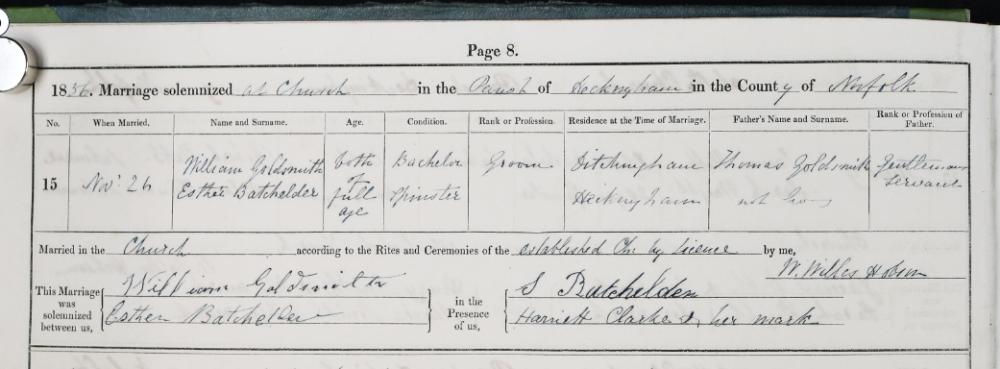 Page 8.
1856. Marriage solemnized at Church in the Parish of Heckingham in the County of Norfolk
No. When Married. Name and Surname. Age. Condition. Rank or Profession. Residence at the Time of Marriage. Father's Name and Surname. Rank or Profession of Father.
15 Nov: 26 William Goldsmith both of full age Bachelor Groom Ditchingham Thomas Goldsmith Gentlemans Servant
Esther Batchelder Spinster Heckingham not
Married in the Church according to the Rites and Ceremonies of the established Ch. by licence by me,
W. Wilkes
This Marriage was solemnized between us, William Goldsmith in the Presence of us, S Batchelder
Esther Batchelder Harriett Clarke her mark